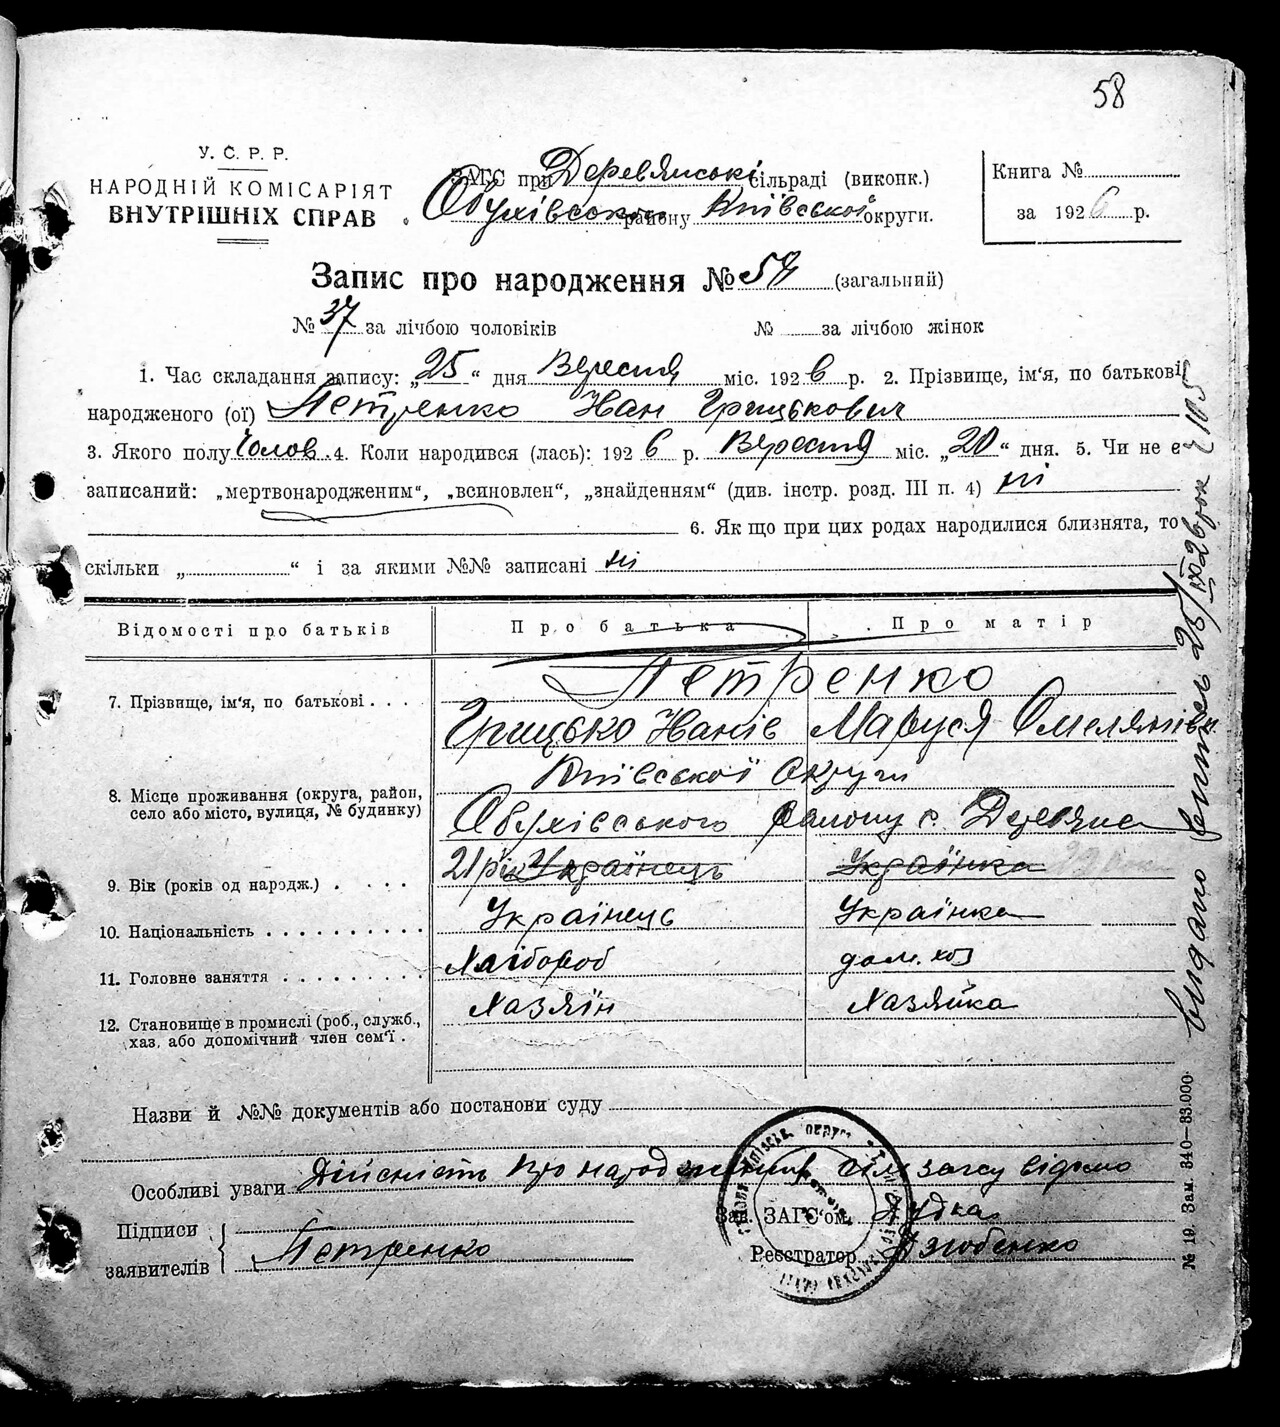 58
У. С. Р. Р.
НАРОДНІЙ КОМІСАРІЯТ
ВНУТРІШНІХ СПРАВ
ЗАГС при Деревянські сільраді (виконк.)
Обухівського району Київської округи.
Книга №
за 1926 р.
Запис про народження № 58 (загальний)
№ 37 за лічбою чоловіків № за лічбою жінок
1. Час складання запису: „25“ дня Вересня міс. 1926 р. 2. Прізвище, ім'я, по батькові
народженого (ої) Петренко Иван Грицькович
3. Якого полу Чолов. 4. Коли народився (лась): 1926 р. Вересня міс. „20“ дня. 5. Чи не є
записаний: „мертвонародженим“, „всиновлен“, „знайденням“ (див. інстр. розд. III п. 4) ні
6. Як що при цих родах народилися близнята, то
скільки „ “ і за якими №№ записані ні
Відомості про батьків Про батька Про матір
Петренко
7. Прізвище, ім'я, по батькові . . . .
Грицько Иванів Маруся Омелянівн
Київської Округи
8. Місце проживання (округа, район,
село або місто, вулиця, № будинку)
Обухівського району с. Деревяна
9. Вік (років од народж.) . . . . 21 рік Українець Українка 22
10. Національність . . . . . . . . . . Українець Українка
11. Головне заняття . . . . . . . . Хлібороб дом. хоз
12. Становище в промислі (роб., служб.,
хаз. або допомічний член сем'ї .
Хазяїн Хазяйка
Назви й №№ документів або постанови суду
Особливі уваги Дійсність про народження загсу відомо
Підписи
заявителів
Петренко
Зав. ЗАГС'ом Дудка
Реєстратор
видано витяг 25/IX 26 рок
№ 19. Зам. 340—83.000